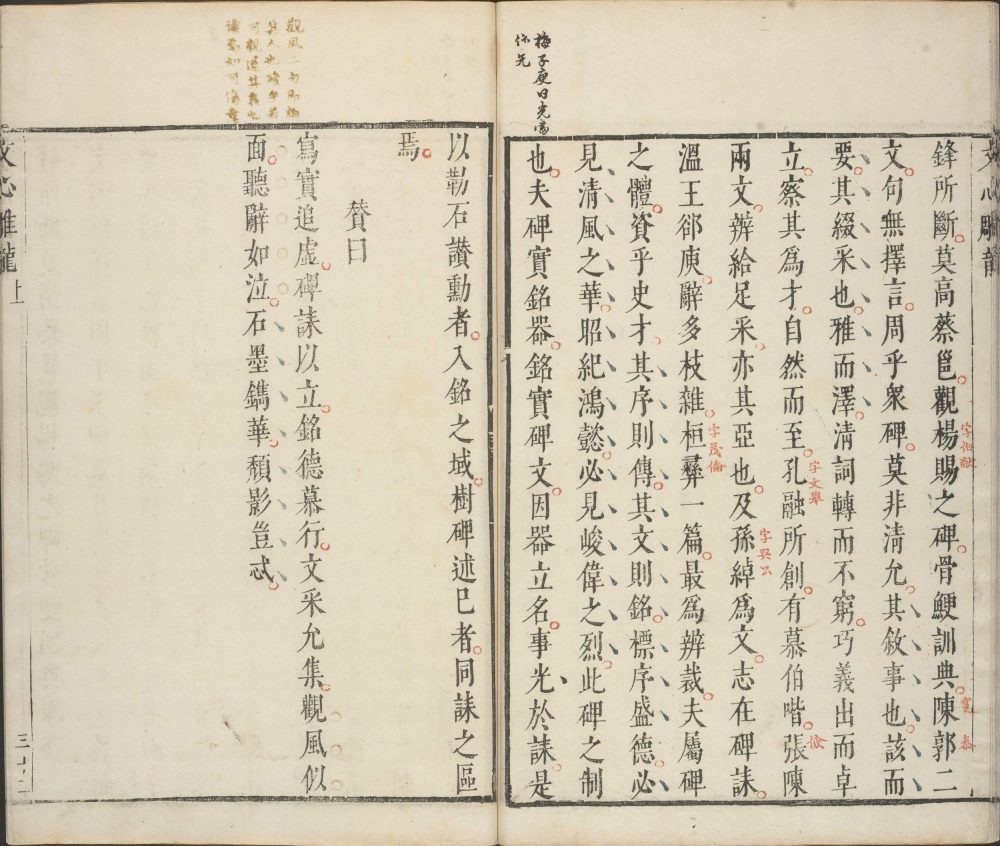 梅子庾曰光當
作先
鋒所斷莫高蔡邕觀楊賜之碑骨鯁訓典陳郭二
字伯獻
寔
泰
文句無擇言周乎衆碑莫非清允其敘事也該而
要其綴采也雅而澤清詞轉而不窮巧義出而卓
立察其爲才自然而至孔融所創有慕伯喈張陳
字文舉
儉
兩文辨給足采亦其亞也及孫綽爲文志在碑誄
字興公
溫王郄庾辭多枝雜桓彝一篇最爲辨裁夫屬碑
字茂倫
之體資乎史才其序則傳其文則銘標序盛德必
見清風之華昭紀鴻懿必見峻偉之烈此碑之制
也夫碑實銘器銘實碑文因器立名事光於誄是
以勒石讃勳者入銘之域樹碑述已者同誄之區
焉
贊曰
寫實追虛碑誄以立銘德慕行文采允集觀風似
面聽辭如泣石墨鐫華頽影豈忒
觀風二句即論
文心雕龍